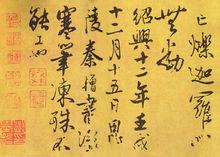 爍迦羅
無動
紹興十二年壬戌
十二月十五日
陵秦檜書
寒筆凍殊不
能工也